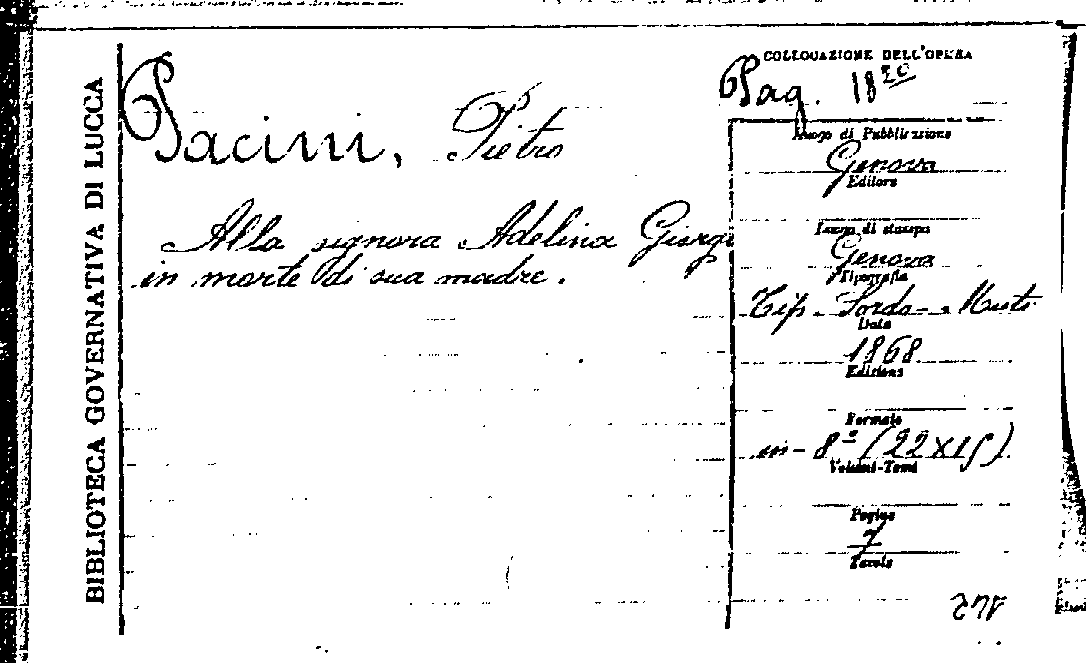 BIBLIOTECA GOVERNATIVA DI LUCCA
Pacini, Pietro
Alla signora Adelina Giorgi
in morte di sua madre.
COLLOCAZIONE DELL'OPERA
Pag. 18 20
Luogo di Pubblicazione
Genova
Editore
Luogo di stampa
Genova
Tipografia
Tip. Sordo-Muti
Data
1868
Edizione
Formato
in-8º (22x15)
Volumi-Tomi
Pagine
7
Tavole